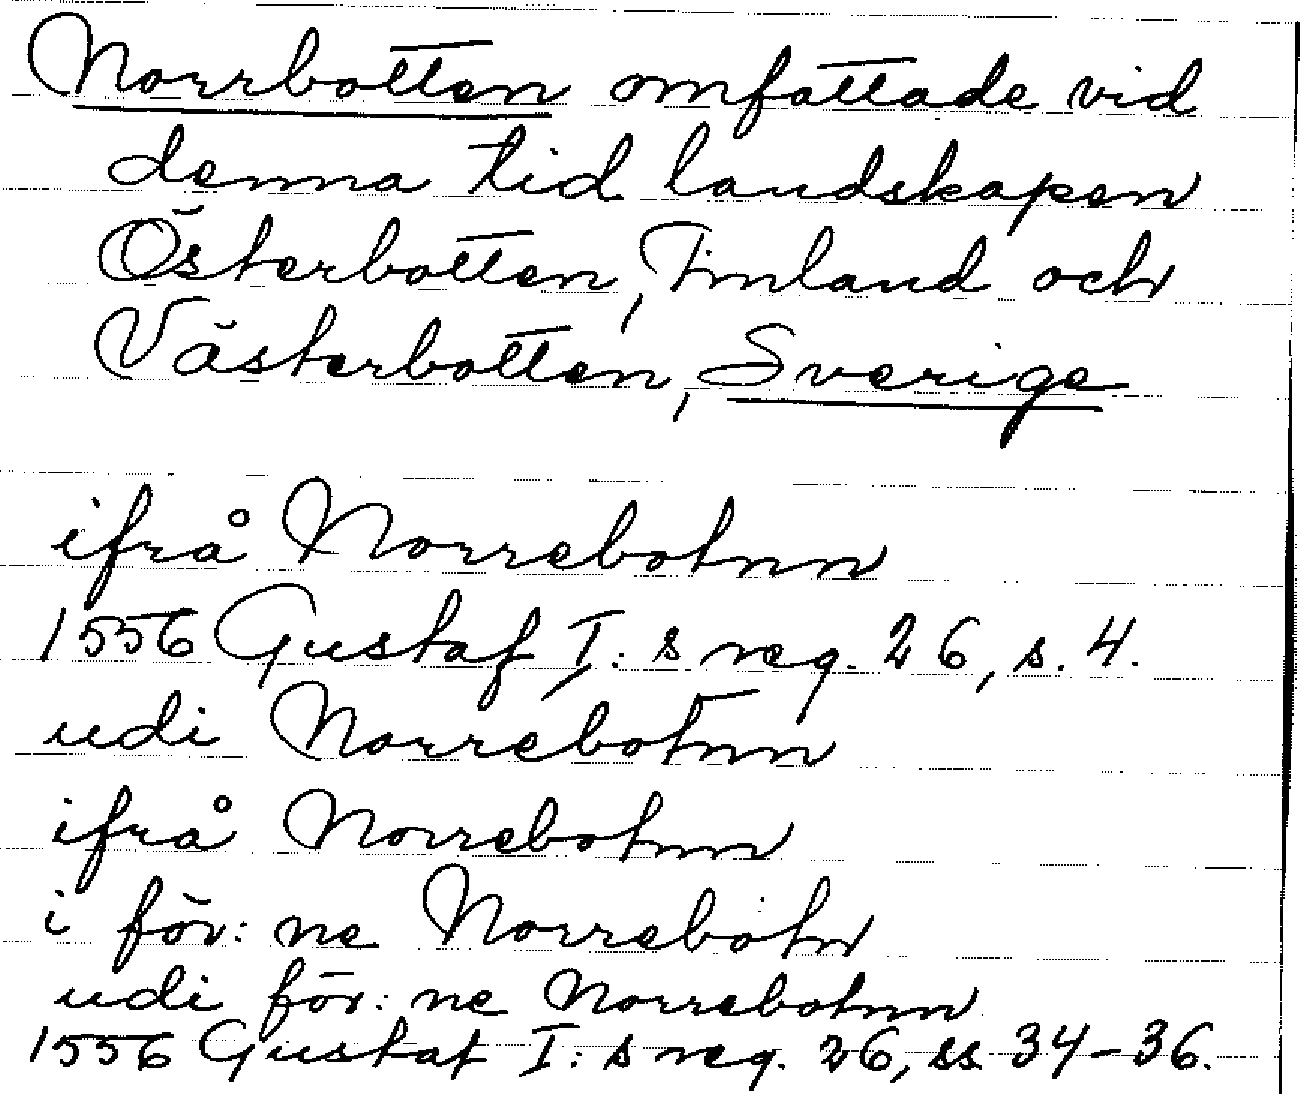 Norrbotten omfattade vid
denna tid landskapen
Österbotten, Finland och
Västerbotten, Sverige
ifrå Norrebotnn
1556 Gustaf I:s reg. 26, s. 4.
udi Norrebotnn
ifrå Norrebotnn
i för:ne Norrebotn
udi för:ne Norrebotnn
1556 Gustaf I:s reg. 26, ss 34-36.